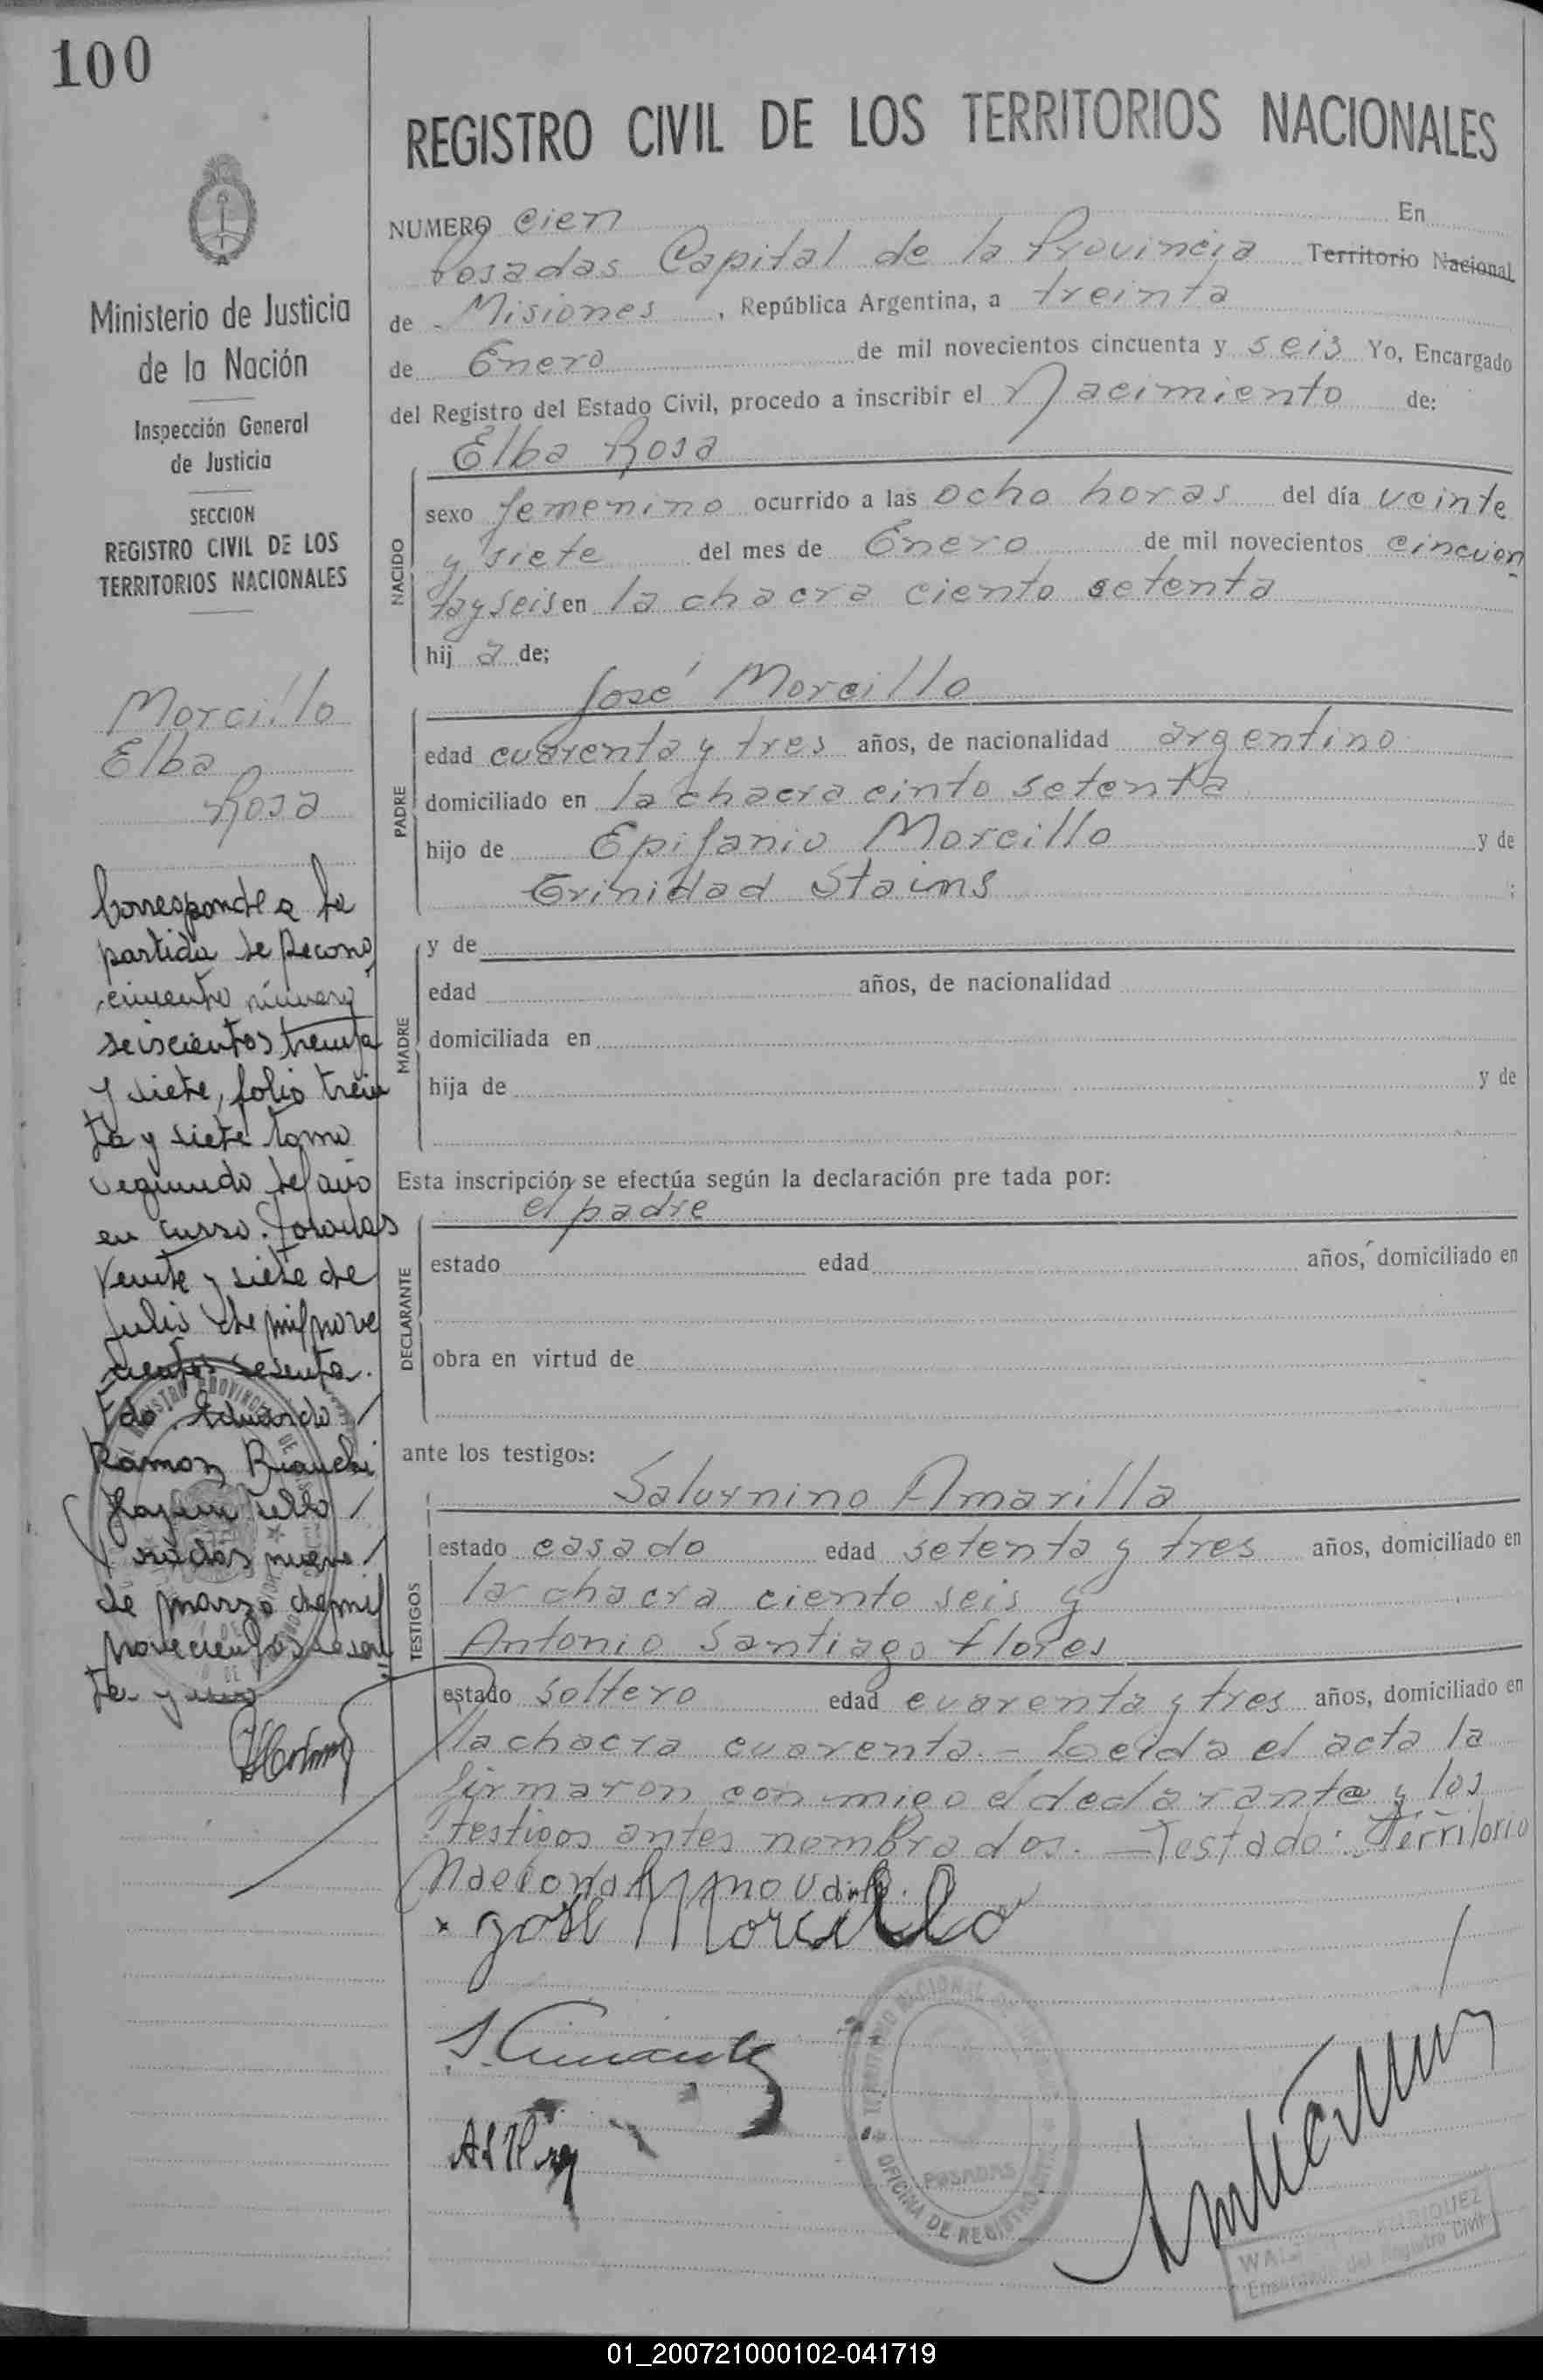 100
REGISTRO CIVIL DE LOS TERRITORIOS NACIONALES
NUMERO cien En
Posadas Capital de la Provincia Territorio Nacional
de Misiones , República Argentina, a treinta
de Enero de mil novecientos cincuenta y seis Yo, Encargado
del Registro del Estado Civil, procedo a inscribir el Nacimiento de:
Elba Rosa
NACIDO
sexo femenino ocurrido a las ocho horas del día veinte
y siete del mes de Enero de mil novecientos cincuen
ta y seis en la chacra ciento setenta
hij a de;
José Morcillo
PADRE
edad cuarenta y tres años, de nacionalidad argentino
domiciliado en la chacra cinto setenta
hijo de Epifanio Morcillo y de
Trinidad Staims ;
MADRE
y de
edad años, de nacionalidad
domiciliada en
hija de y de
Esta inscripción se efectúa según la declaración pre tada por:
el padre
DECLARANTE
estado edad años, domiciliado en
obra en virtud de
ante los testigos:
Saturnino Amarilla
TESTIGOS
estado casado edad setenta y tres años, domiciliado en
la chacra ciento seis y
Antonio Santiago flores
estado soltero edad cuarenta y tres años, domiciliado en
la chacra cuarenta.- Leida el acta la
firmaron conmigo el declarante y los
testigos antes nombrados. - Testado: Territorio
Nacional: no vale.
José Morcillo
OFICINA DE REGISTRO CIVIL
POSADAS
Encargado del Registro Civil
Ministerio de Justicia
de la Nación
Inspección General
de Justicia
SECCION
REGISTRO CIVIL DE LOS
TERRITORIOS NACIONALES
Morcillo
Elba
Rosa
Corresponde a la
partida de Recono
cimiento número
seiscientos treinta
y siete, folio trein
ta y siete tomo
segundo del año
en curso. Posadas
veinte y siete de
julio de mil nove
cientos sesenta.
Fdo. Eduardo
Ramon Bianchi
Hay un sello
Posadas nueve
de marzo de mil
novecientos sesen
ta y uno
01_200721000102-041719